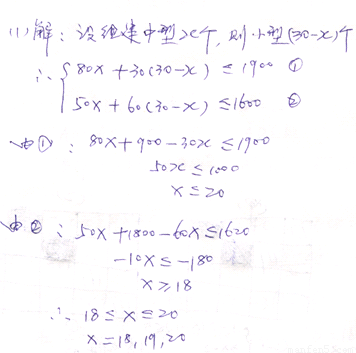 (1)解：设组建中型x个，则小型(30-x)个
∴{80x+30(30-x)≤1900 ①
50x+60(30-x)≤1600 ②
由①：80x+900-30x≤1900
50x≤1000
x≤20
由②：50x+1800-60x≤1620
-10x≤-180
x≥18
∴18≤x≤20
x=18,19,20